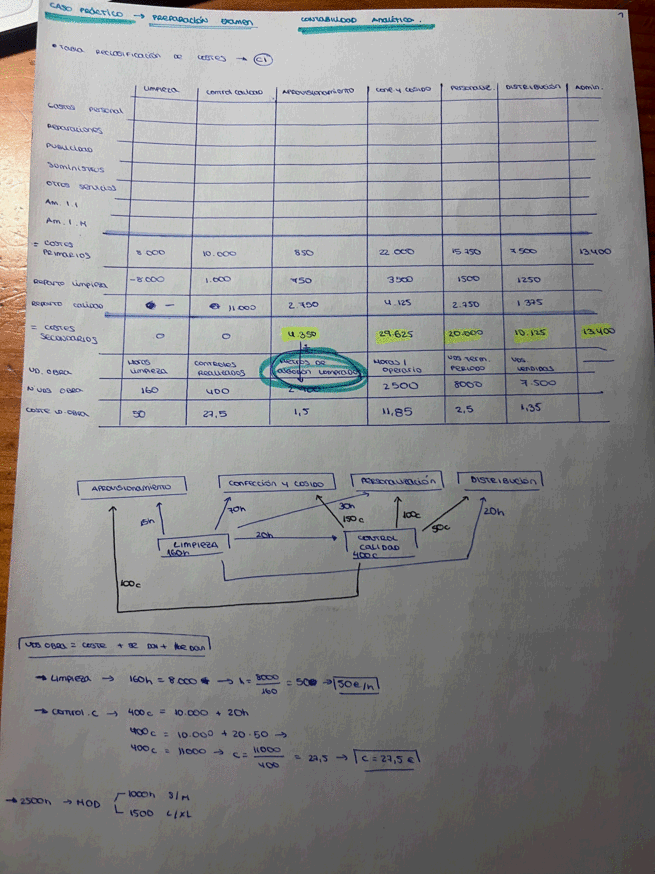 CASO PRÁCTICO → PREPARACIÓN EXAMEN CONTABILIDAD ANALÍTICA. 1
* TABLA RECLASIFICACIÓN DE COSTES → C1
LIMPIEZA CONTROL CALIDAD APROVISIONAMIENTO CONF. Y COSIDO PERSONALIZ. DISTRIBUCIÓN ADMIN.
COSTES PERSONAL
REPARACIONES
PUBLICIDAD
SUMINISTROS
OTROS SERVICIOS
AM. I.I
AM. I.M
= COSTES
PRIMARIOS 8000 10.000 850 22 000 15 750 7500 13.400
REPARTO LIMPIEZA -8000 1.000 750 3500 1500 1250
REPARTO CALIDAD - 11000 2.750 4.125 2.750 1.375
= COSTES
SECUNDARIOS 0 0 4.350 29.625 20.000 10.125 13.400
UD. OBRA HORAS LIMPIEZA CONTROLES REALIZADOS METROS DE ALGODÓN COMPRADO HORAS / OPERARIO UDS TERM. PERIODO UDS VENDIDAS
N UDS OBRA 160 400 2.900 2500 8000 7.500
COSTE UD. OBRA 50 27,5 1,5 11,85 2,5 1,35
APROVISIONAMIENTO CONFECCIÓN Y COSIDO PERSONALIZACIÓN DISTRIBUCIÓN
15h 70h 30h 150c 100c 50c 20h
LIMPIEZA 160h 20h CONTROL CALIDAD 400c
100c
UDS OBRA = COSTE +
→ LIMPIEZA → 160h = 8.000 → h = 8000/160 = 50 → 50€/h
→ CONTROL.C → 400c = 10.000 + 20h
400c = 10.000 + 20·50 →
400c = 11000 → c = 11000/400 = 27,5 → c = 27,5 €
→ 2500h → MOD 1000h S/M
1500 L/XL